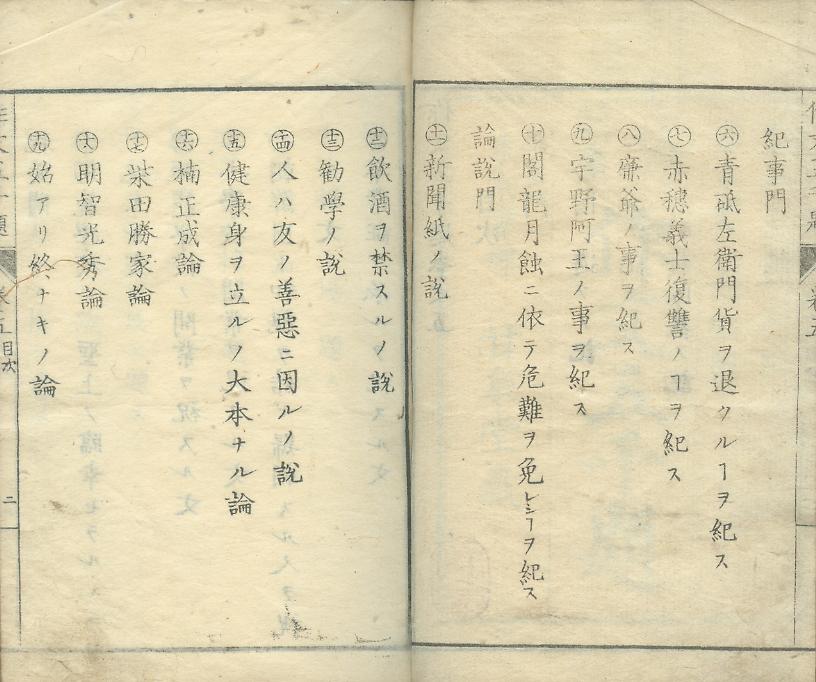 紀事門
㊅青砥左衛門貨ヲ退クルヿヲ紀ス
㊆赤穂義士復讐ノヿヲ紀ス
㊇廉爺ノ事ヲ紀ス
㊈宇野阿王ノ事ヲ紀ス
㊉閣龍月蝕ニ依テ危難ヲ免レシヿヲ紀ス
論説門
十一新聞紙ノ説
十二飲酒ヲ禁スルノ説
十三勧學ノ説
十四人ハ友ノ善惡ニ因ルノ説
十五健康身ヲ立ルノ大本ナル論
十六楠正成論
十七柴田勝家論
十八明智光秀論
十九始アリ終ナキノ論
目次
二